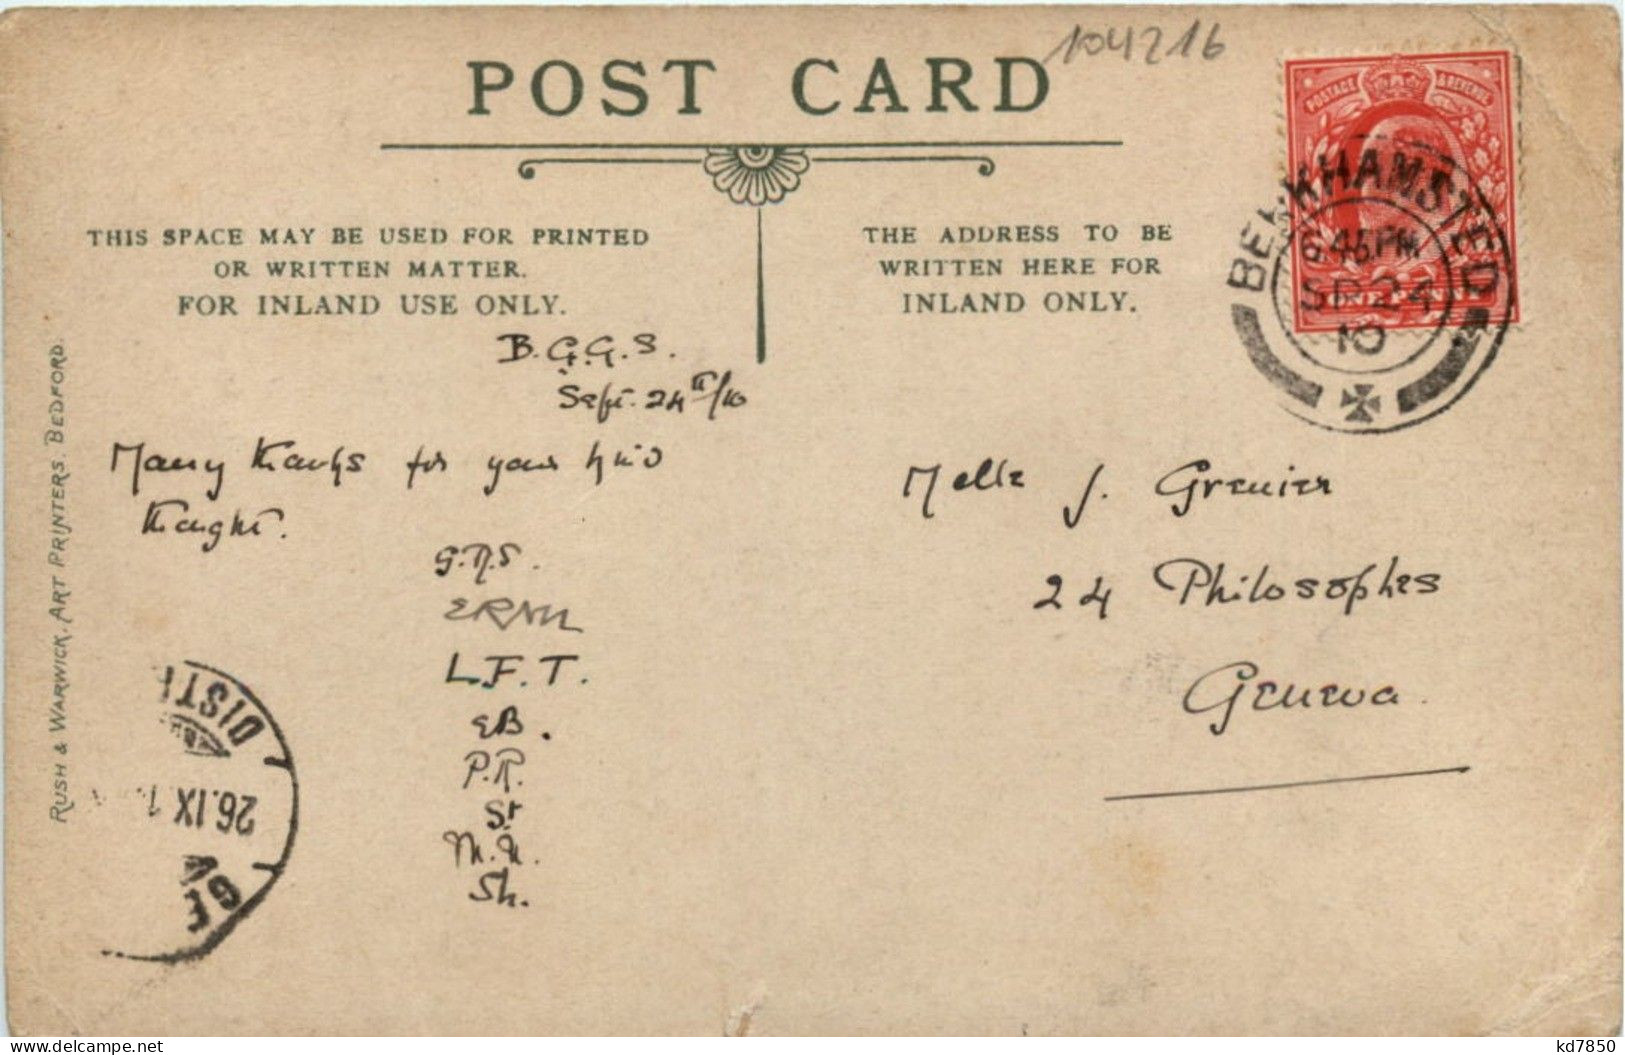 104216
POST CARD
POSTAGE & REVENUE
BERKHAMSTED
6.45PM
SP 24
10
ONE PENNY
THIS SPACE MAY BE USED FOR PRINTED
OR WRITTEN MATTER.
FOR INLAND USE ONLY.
THE ADDRESS TO BE
WRITTEN HERE FOR
INLAND ONLY.
B.G.G.S.
Sept. 24th/10
Many thanks for your kind
thought.
G.R.S.
L.F.T.
EB.
P.R.
St
M.N.
Sh.
Melle J. Grenier
24 Philosophes
Geneva.
RUSH & WARWICK, ART PRINTERS. BEDFORD.
DISTR
26.IX.1
GE
kd7850